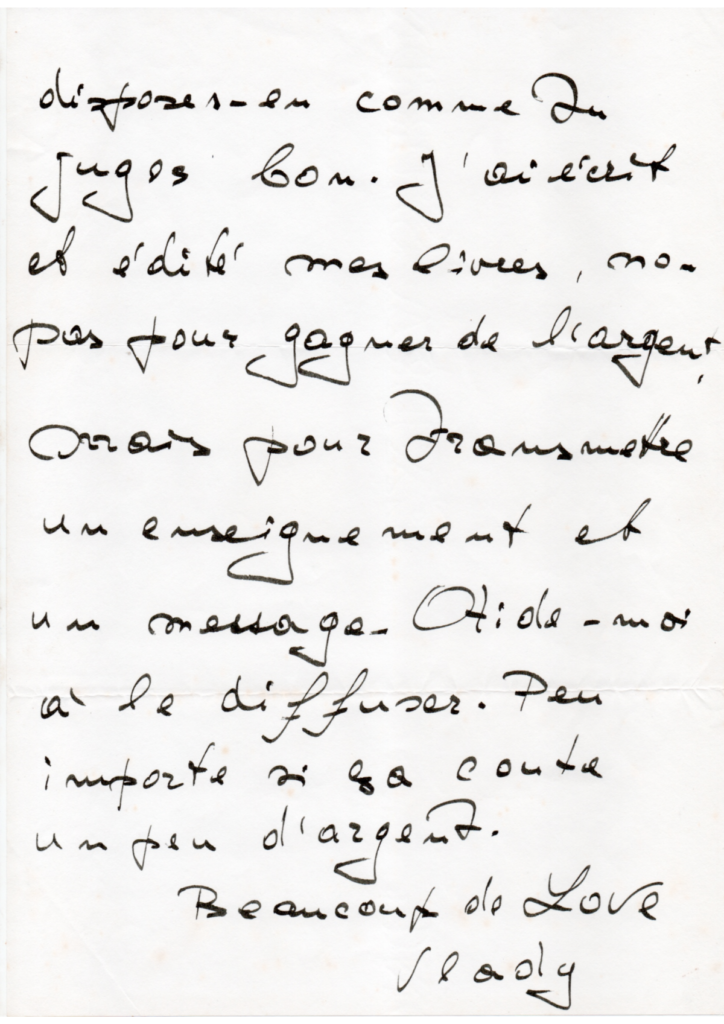 disposes-en comme Tu
juges bon. J'ai écrit
et édité mes livres, no-
pas pour gagner de l'argent,
Mais pour Transmettre
un enseignement et
un message. Aide-moi
à le diffuser. Peu
importe si ça coute
un peu d'argent.
Beaucoup de Love
Vlady